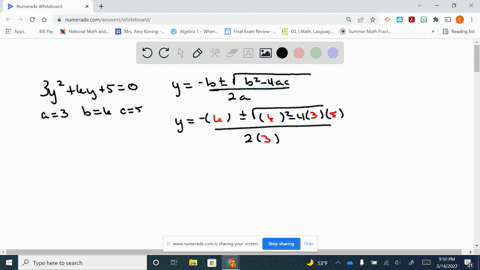 Numerade Whiteboard
numerade.com/answers/whiteboard/
Apps
Bill Pay
National Math and...
Mrs. Amy Koning -...
Algebra 1 – When...
Final Exam Review -...
(XL | Math, Languag...
Summer Math Pract...
Reading list
3y² + ky + 5 = 0
a = 3 b = k c = 5
y = -b ± √b² - 4ac
2a
y = -(k) ± √(k)² - 4(3)(5)
2(3)
www.numerade.com is sharing your screen.
Stop sharing
Hide
Type here to search
53°F
9:50 PM
2/14/2022